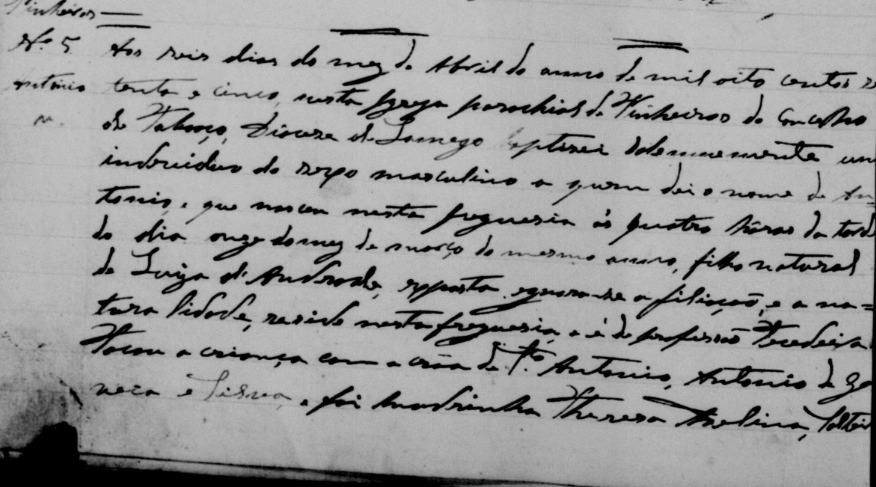 Pinheiros
Nº 5 Aos seis dias do mez de Abril do anno de mil oito centos se
Antonio tenta e cinco, nesta Igreja parochial de Pinheiros do Concelho
n. de Taboaço, Diocese de Lamego baptizei solemnemente um
individuo do sexo masculino a quem dei o nome de An=
tonio, que nasceu nesta freguesia ás quatro hóras da tarde
do dia onze do mez de março do mesmo anno, filho natural
de Luiza d'Andrade, exposta, ignora-se a filiação, e a na=
turalidade, reside nesta freguesia, e é de profissão Tecedeira
Tocou a criança com a crôa de Sto Antonio, Antonio da
e foi Madrinha Theresa Avelina, solteir